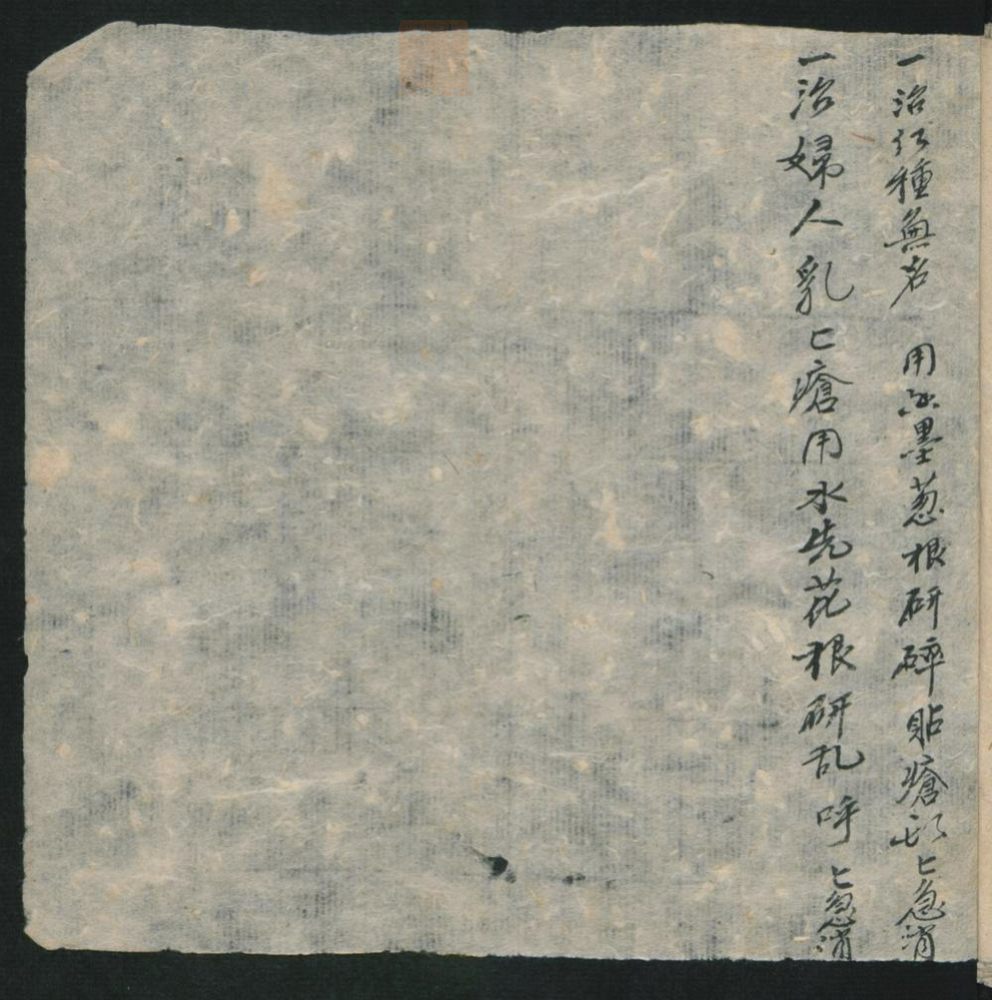 一治红種無名 用墨葱根研碎貼瘡匕急消
一治婦人乳匕瘡用水先花根研乱呼匕急消